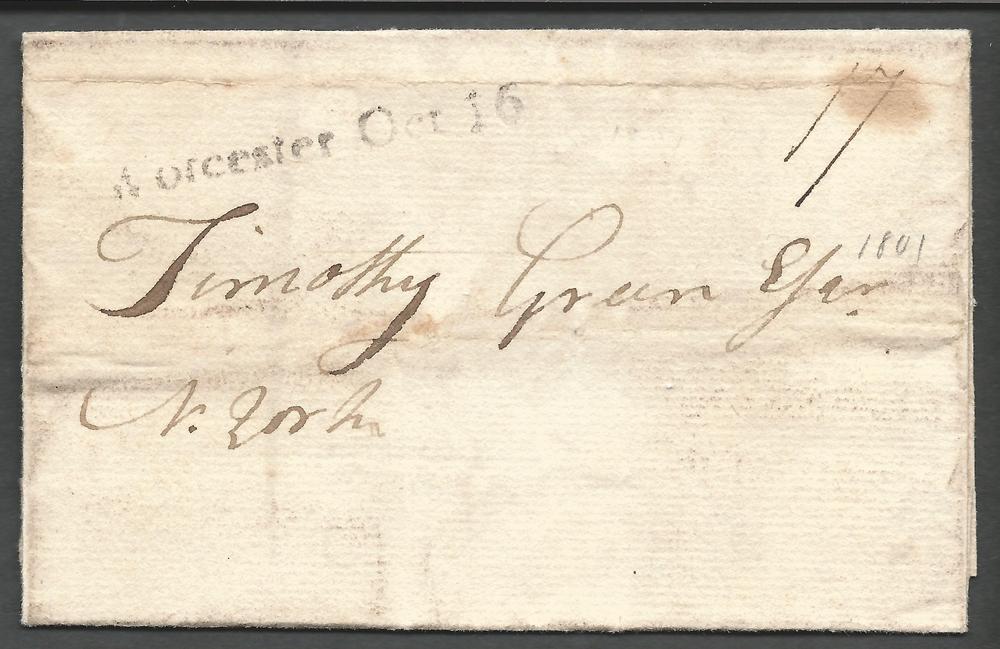 Worcester Oct 16
17
Timothy Green Esqr
1801
N. York